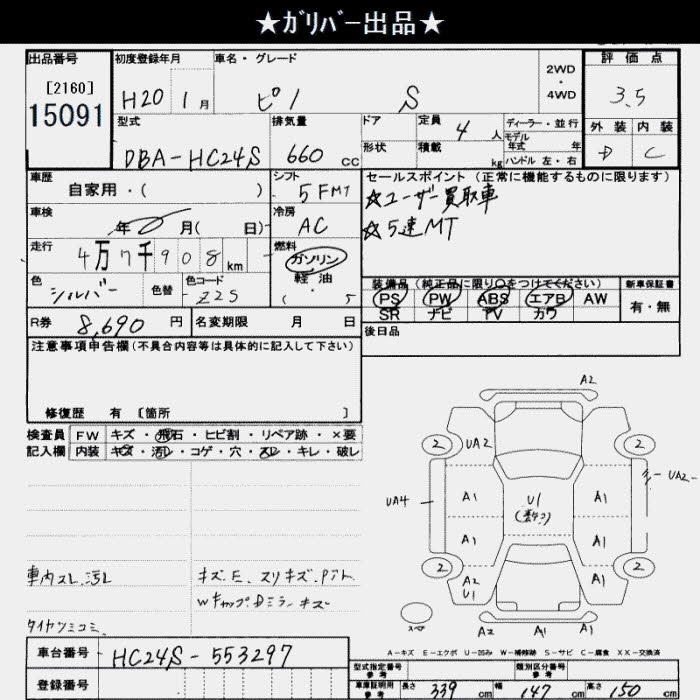 ★ｶﾞﾘﾊﾞｰ出品★
出品番号 初度登録年月 車名・グレード 2WD・4WD 評価点
[2160]
15091
H20 1月 ピノ S 3.5
外装 内装
D C
型式 排気量 ドア 定員 4人 ディーラー・並行
モデル年式 年
形状 積載 kg ハンドル 左・右
DBA-HC24S 660 cc
車歴 自家用・( ) シフト 5FMT セールスポイント (正常に機能するものに限ります)
☆ユーザー買取車
☆5速MT
車検 年 月( 日) 冷房 AC
走行 4万7千908km 燃料 ガソリン・軽油・( )
色 シルバー 色替 色コード Z2S 5
装備品(純正品に限り○をつけてください) 新車保証書
PS PW ABS エアB AW 有・無
SR ナビ TV カワ
R券 8,690円 名変期限 月 日 後日品
注意事項申告欄(不具合内容等は具体的に記入して下さい)
修復歴 有 [箇所 ]
検査員記入欄 FW キズ・飛石・ヒビ割・リペア跡・×要
内装 キズ・汚レ・コゲ・穴・スレ・キレ・破レ
A2
2 UA2 2 UA2
UA4 A1 U1 A1
A1 A1
2 A2 U1 A1 2
スペア A2 A1
車内スレ.汚レ キズ.E.スリキズ.
Wキャップ.Dミラーキズ
タイヤツミコミ
A-キズ E-エクボ U-凹み W-補修跡 S-サビ C-腐食 XX-交換済
車台番号 HC24S-553297
登録番号
型式指定番号 類別区分番号
車庫証明用参考 長さ 339cm 幅 147cm 高さ 150cm